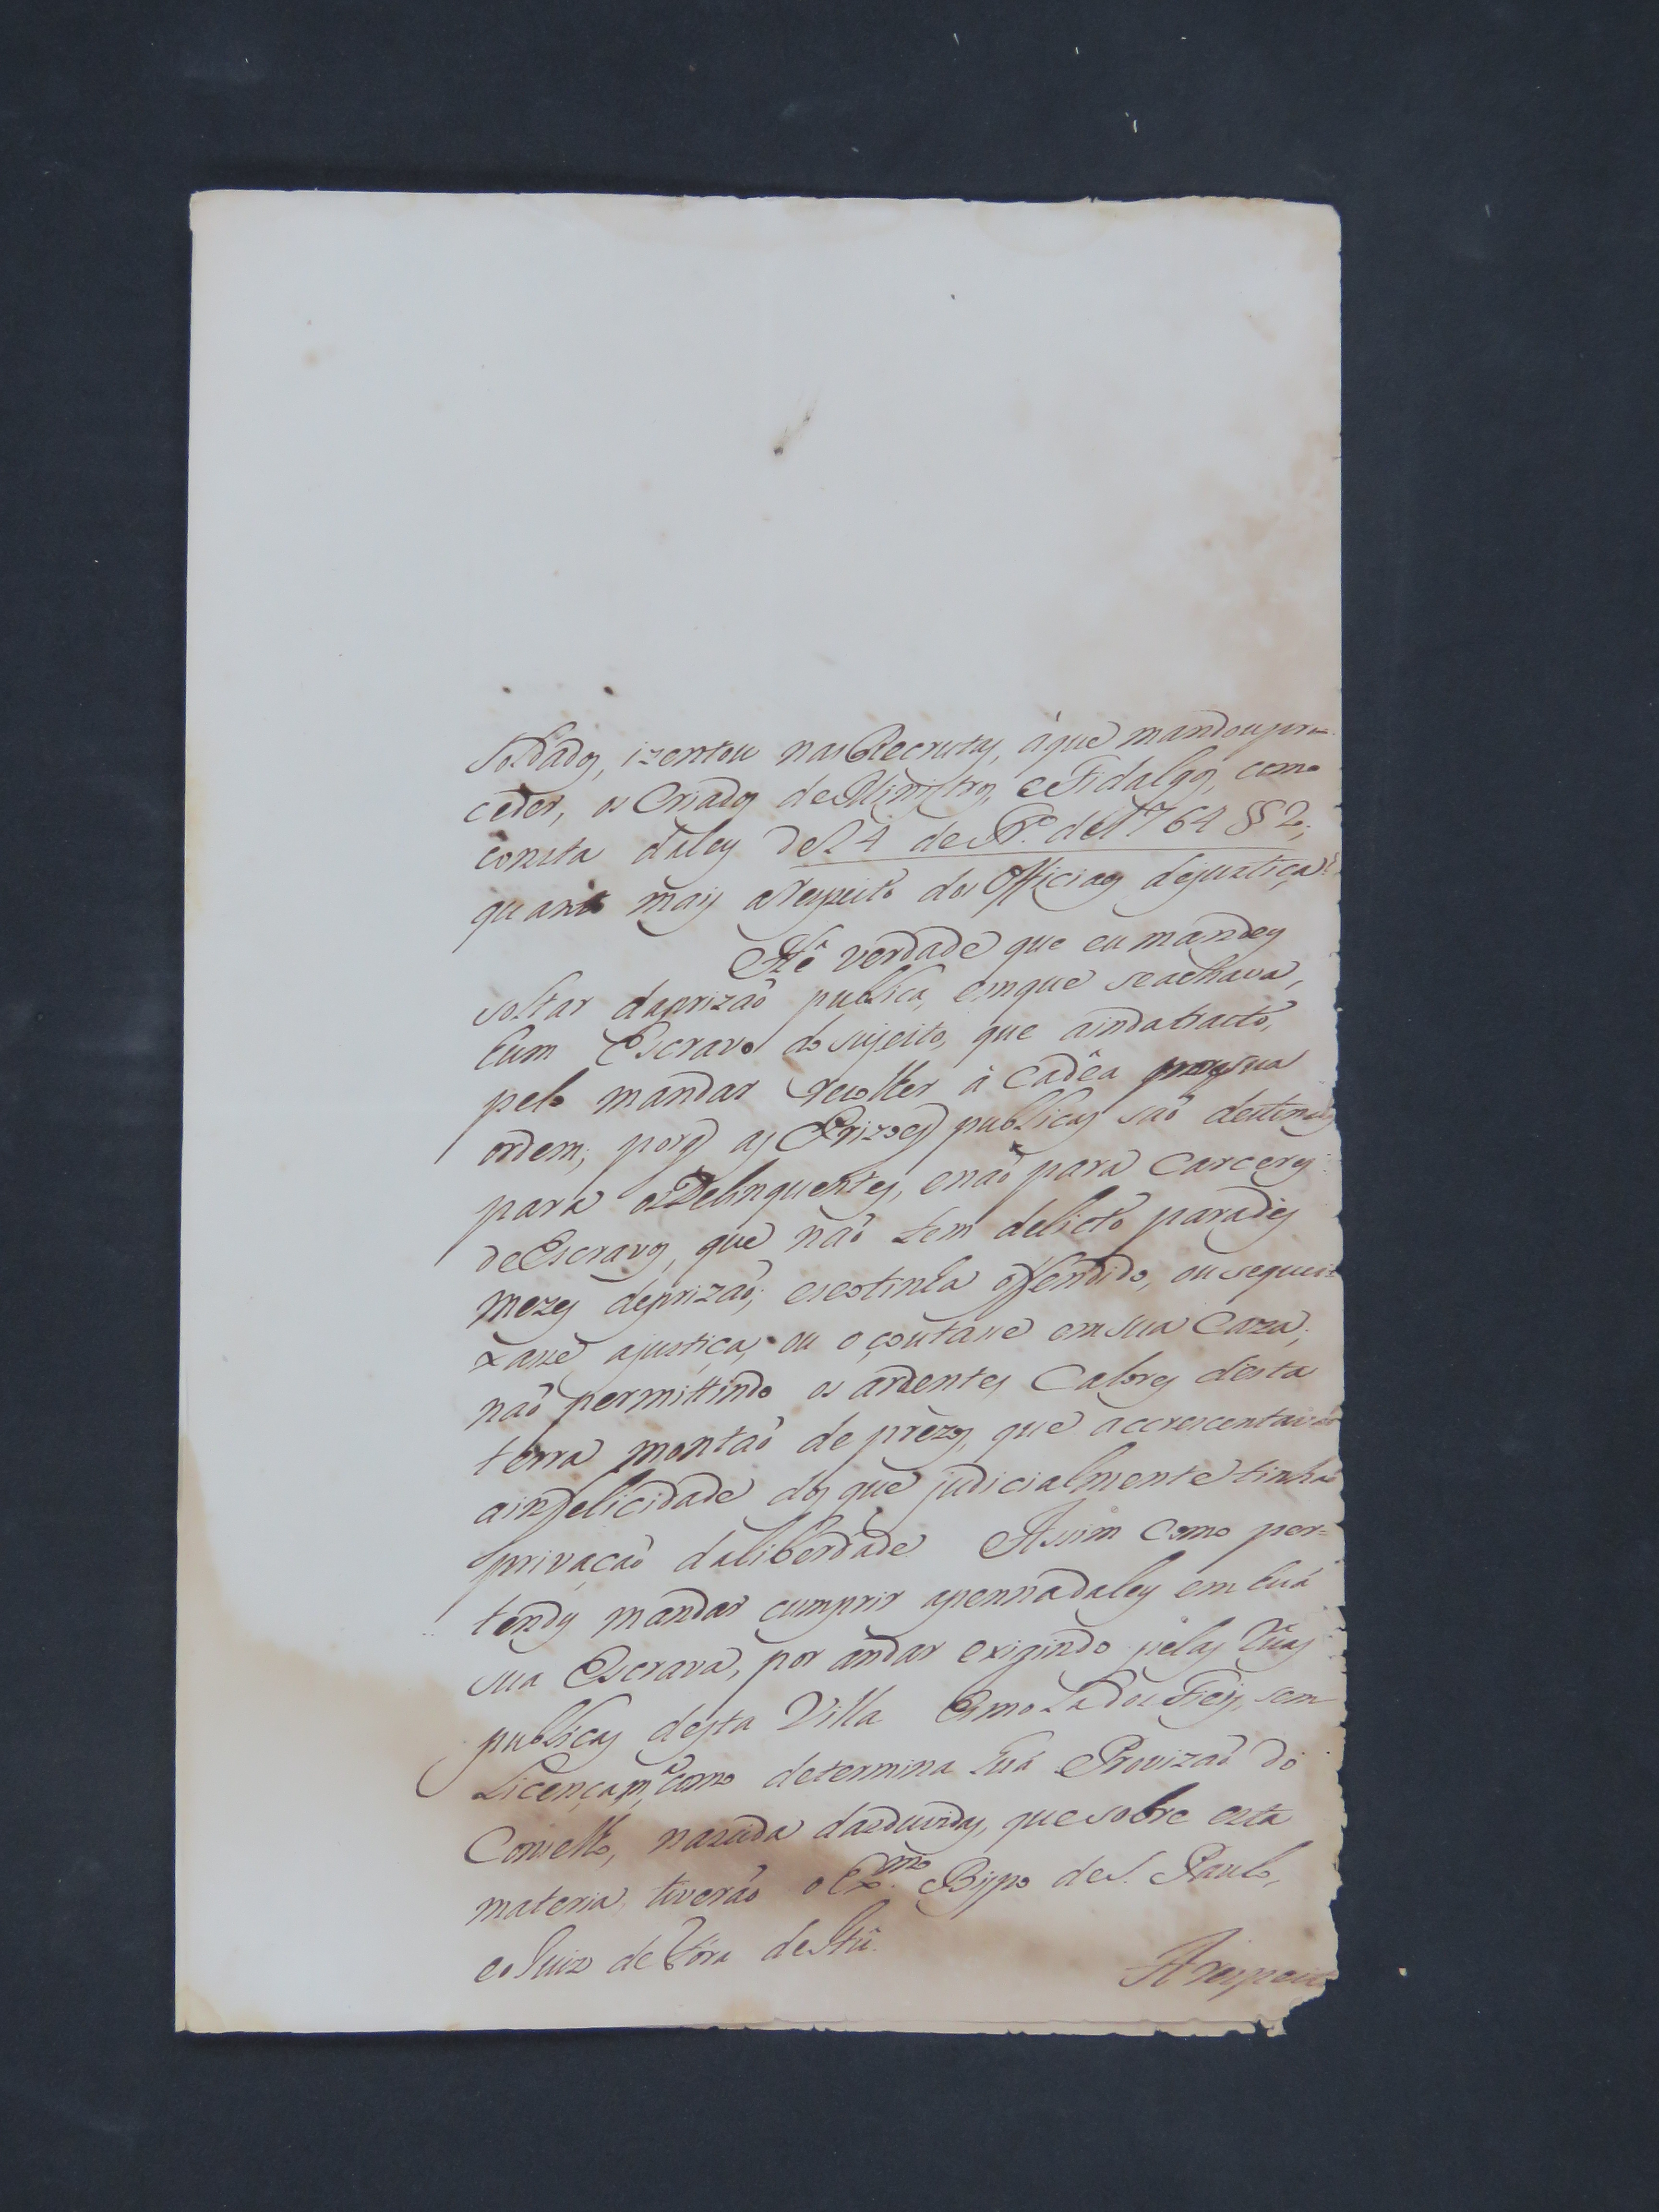 Soldados, izentou nas Recrutas, á que mandou pro=
ceder, os Criados de Ministros, e Fidalgos, como
consta da ley de 24 de Fr.º de 1764 §§ 2;
quanto mais a respeito dos Officiaes de justiça!
Hê verdade que eu mandey
soltar da prizaõ publica, em que se achava,
hum Escravo do sujeito, que ainda tracto,
pelo mandar recolher á Cadêa por sua
ordem; porq as Prizoes publicas saõ destinadas
para os Delinquentes, e naõ para Carceres
de Escravos, que naõ tem delicto para dez
mezes de prizaõ; e se o tinha offendido, ou se quei
xasse a justiça, ou o çoutasse em sua Caza;
naõ permittindo os ardentes Calores desta
terra montaõ de prezos, que accrescentavaõ
a infelicidade dos que judicialmente tinhaõ
privaçaõ da liberdade. Assim como per=
tendy mandar cumprir a penna da ley em huã
sua Escrava, por andar exigindo pelas Ruas
publicas desta Villa Esmola dos Fieis, sem
Licença m.ª, como determina huã Provizaõ do
Conselho, nascida das duvidas, que sobre esta
materia tiveraõ o Ex.mo Bispo de S. Paulo,
e o Juiz de Fóra de Itú.
A respeito